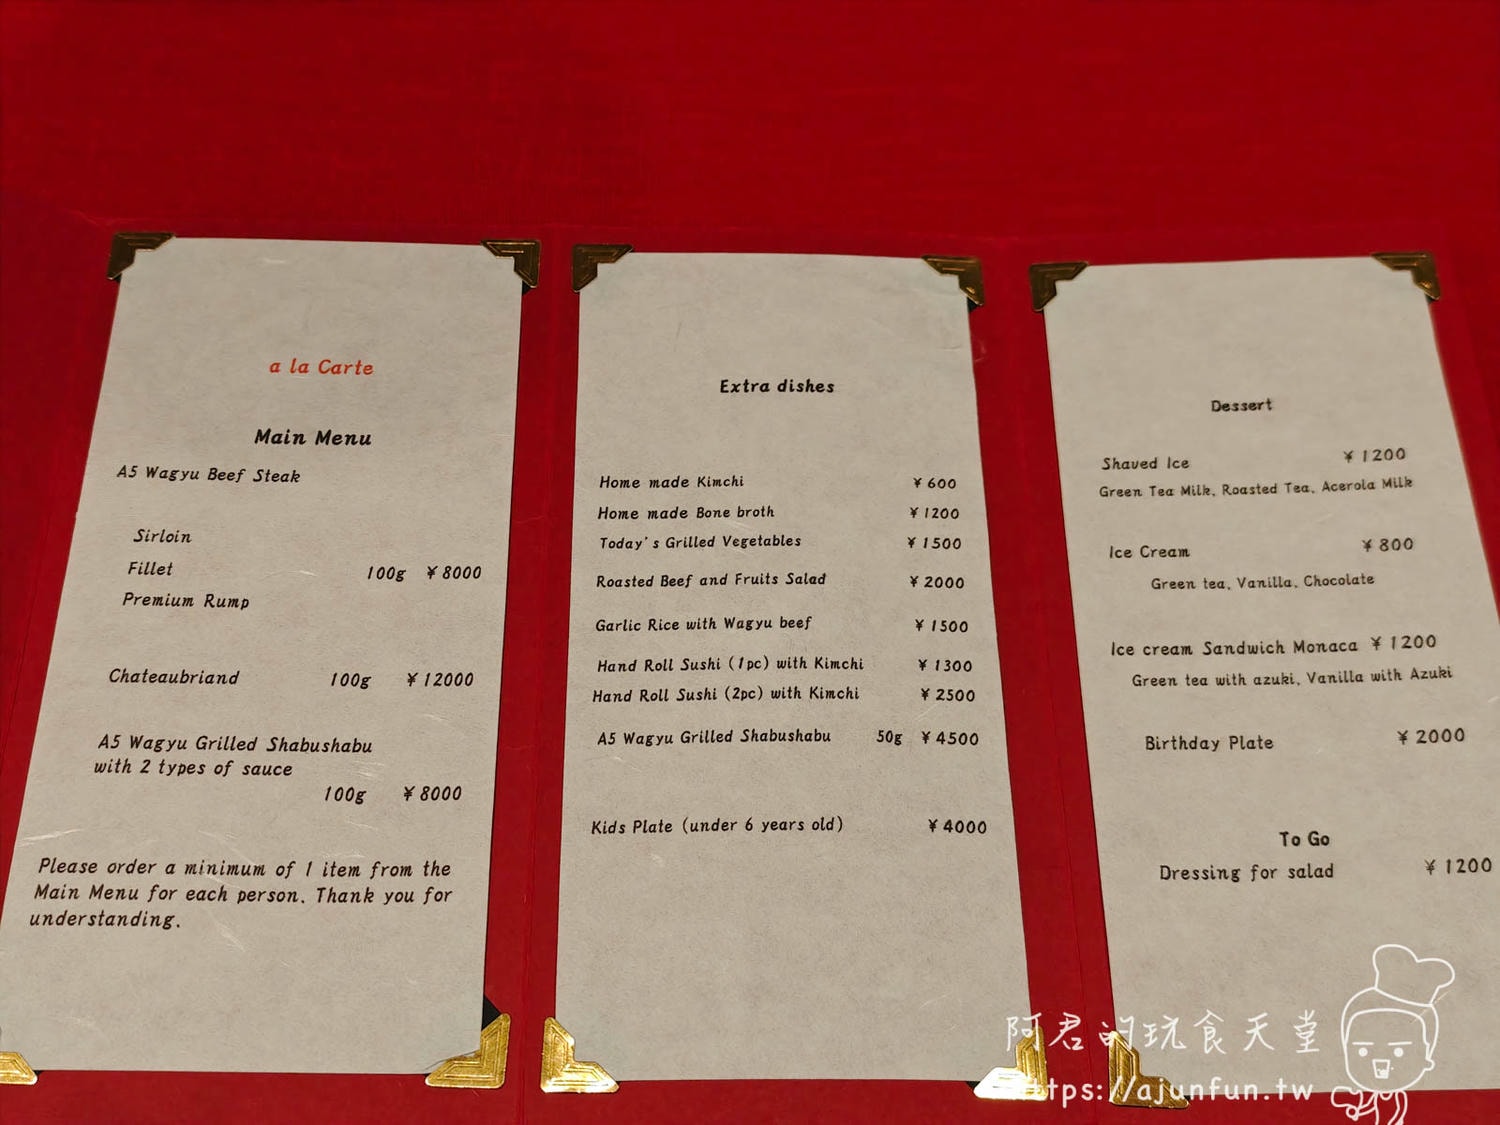 a la Carte
Main Menu
A5 Wagyu Beef Steak
Sirloin
Fillet 100g ¥8000
Premium Rump
Chateaubriand 100g ¥12000
A5 Wagyu Grilled Shabushabu
with 2 types of sauce
100g ¥8000
Please order a minimum of 1 item from the
Main Menu for each person. Thank you for
understanding.
Extra dishes
Home made Kimchi ¥600
Home made Bone broth ¥1200
Today's Grilled Vegetables ¥1500
Roasted Beef and Fruits Salad ¥2000
Garlic Rice with Wagyu beef ¥1500
Hand Roll Sushi (1pc) with Kimchi ¥1300
Hand Roll Sushi (2pc) with Kimchi ¥2500
A5 Wagyu Grilled Shabushabu 50g ¥4500
Kids Plate (under 6 years old) ¥4000
Dessert
Shaved Ice ¥1200
Green Tea Milk, Roasted Tea, Acerola Milk
Ice Cream ¥800
Green tea, Vanilla, Chocolate
Ice cream Sandwich Monaca ¥1200
Green tea with azuki, Vanilla with Azuki
Birthday Plate ¥2000
To Go
Dressing for salad ¥1200
阿君的玩食天堂
https://ajunfun.tw